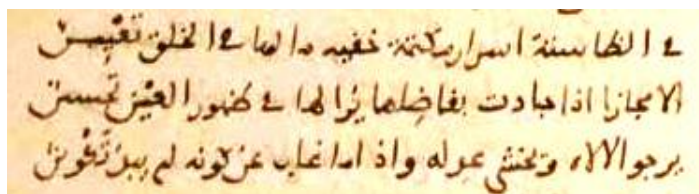 في الظا سنة اسرار مكتمة خفيه ما لها في الخلق تعيين
الا مجازا اذا جادت بفاضلها يرا لها في ظهور العين تحسين
يرجو الالاه ويخشى عدله واذا ما غاب عن كونه لم يبد تكوين